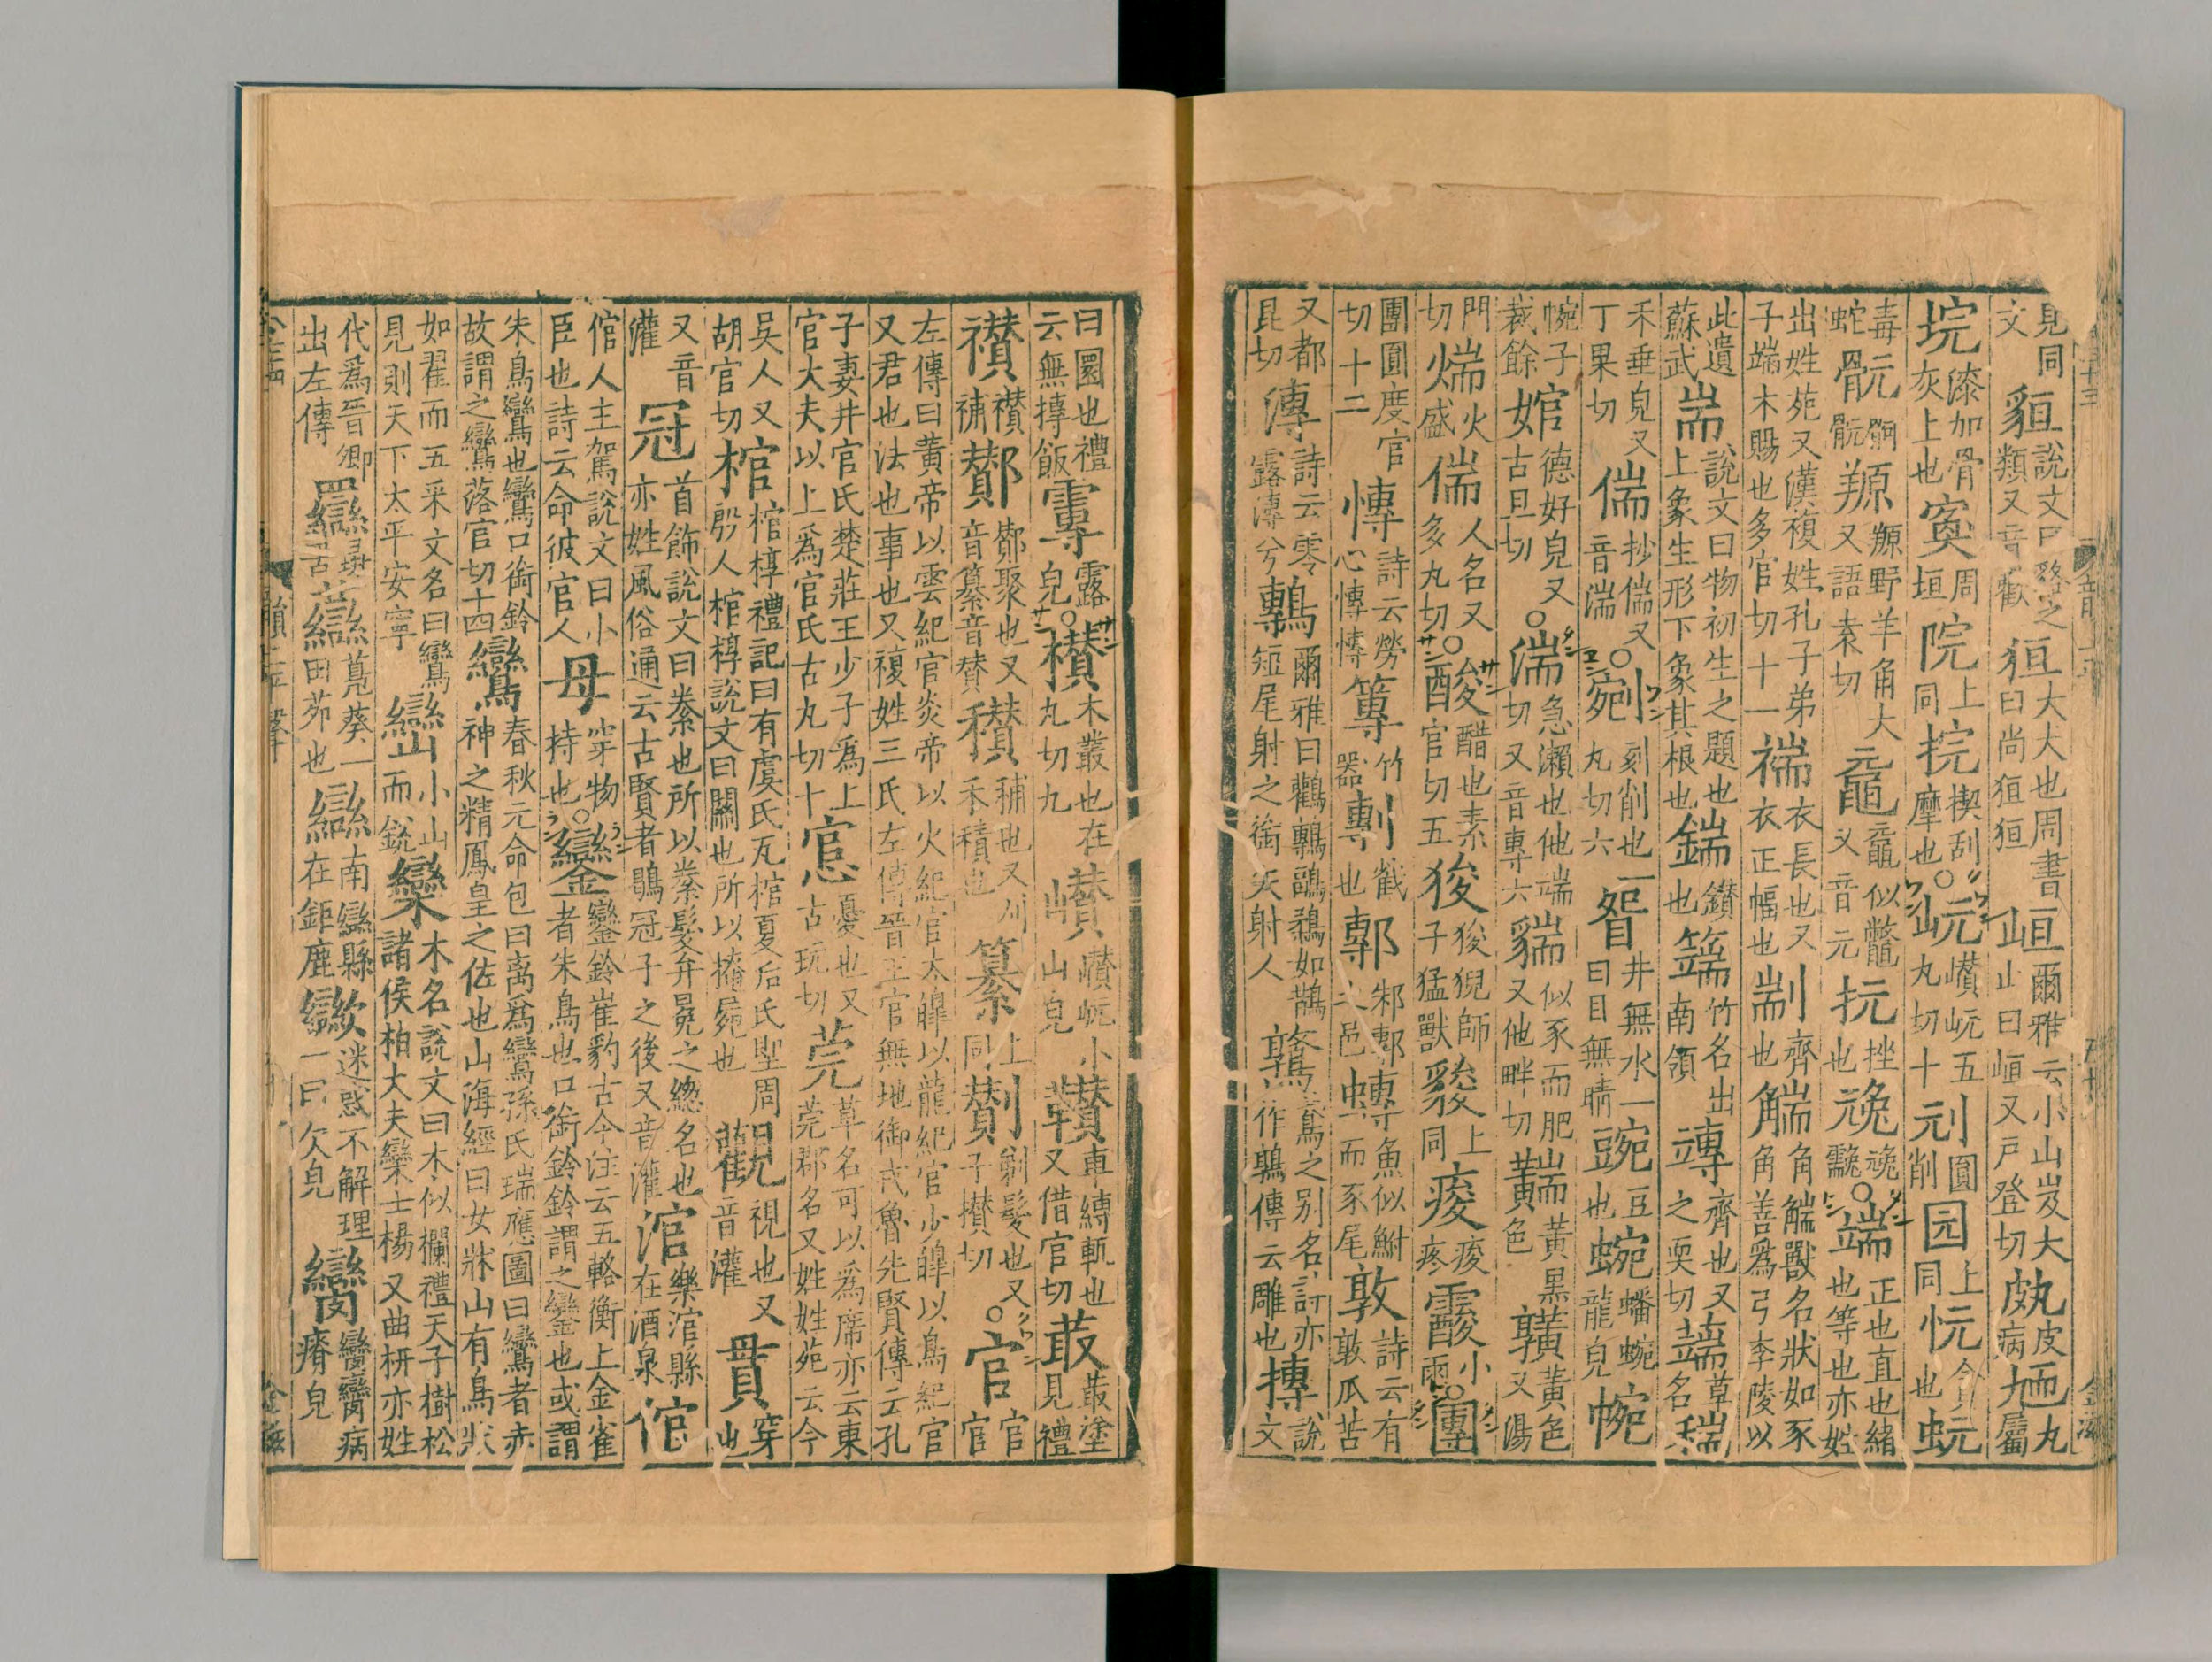 皃同文貆說文曰貉之類又音歡狟大犬也周書曰尚狟狟峘爾雅云小山岌大山曰峘又戶登切㿪皮病𠁽丸屬
垸漆加骨灰上也寏周垣院上同捖揳刮摩也○岏巑岏五丸切十刓圓削园上同忨貪也蚖
毒蛇䯘羱羱野羊角大又語袁切黿黿似鼈又音元抏挫也○端正也直也緒也等也亦姓
出姓苑又漢複姓孔子弟子端木賜也多官切十一褍衣長也又衣正幅也剬齊也䚪角䚪獸名狀如豕角善爲弓李陵以
此遺蘇武耑說文曰物初生之題也上象生形下象其根也鍴鑽也篅竹名出南領竱齊也又之耎切草名
禾垂皃又丁果切偳抄偳又音湍○剜刻削也一丸切六眢井無水一曰目無睛豌豆也蜿蟠蜿龍皃帵
帵子裁餘婠德好皃又古旦切○湍急瀨也他端切又音專六貒似豕而肥又他畔切黃黑色黃色又湯
門切煓火盛偳人名又多丸切○酸醋也素官切五狻狻猊師子猛獸上同痠痠疼小雨○團
團圓度官切十二慱詩云勞心慱慱篿竹器剸截也鄟邾鄟之邑鱄魚似鮒而豕尾敦詩云有敦瓜苦
又都昆切漙詩云零露漙兮鷒爾雅曰鸛鷒鶝鶔如鵲短尾射之銜矢射人鷻鳶之別名亦作鷻傳云雕也摶說文
曰圜也禮云無摶飯𩅃露皃○欑木叢也在丸切九巑巑岏小山皃𩎈車縛軏也又借官切菆菆塗見禮
襸襸補酇酇聚也又音纂音賛䄖䅽也又刈禾積也纂上同劗剃髮也又子攅切○官官宦
左傳曰黃帝以雲紀官炎帝以火紀官太皥以龍紀官少皥以鳥紀官又君也法也事也又複姓三氏左傳晉王官無地御戎魯先賢傳云孔
子妻井官氏楚莊王少子爲上官大夫以上爲官氏古丸切十悹憂也又古玩切莞草名可以爲席亦云東莞郡名又姓姓苑云今
吳人又胡官切棺棺椁禮記曰有虞氏瓦棺夏后氏堲周殷人棺椁說文曰關也所以掩屍也觀視也又音灌毌穿也
又音灌冠首飾說文曰絭也所以絭髮弁冕之緫名也亦姓風俗通云古賢者鶡冠子之後又音灌涫樂涫縣在酒泉倌
倌人主駕說文曰小臣也詩云命彼倌人毌穿物持也○鑾鑾鈴崔豹古今注云五輅衡上金雀者朱鳥也口銜鈴鈴謂之鑾也或謂
朱鳥鸞也鸞口銜鈴故謂之鸞落官切十四鸞春秋元命包曰离爲鸞孫氏瑞應圖曰鸞者赤神之精鳳皇之佐也山海經曰女牀山有鳥狀
如翟而五采文名曰鸞見則天下太平安寧巒小山而銳欒木名說文曰木似欄禮天子樹松諸侯柏大夫欒士楊又曲枅亦姓
代爲晉卿出左傳羉彘罟虊鳧葵一曰茆也䜌南䜌縣在鉅鹿𣤶迷惑不解理一曰欠皃𤼙𤼙𤼙病瘠皃